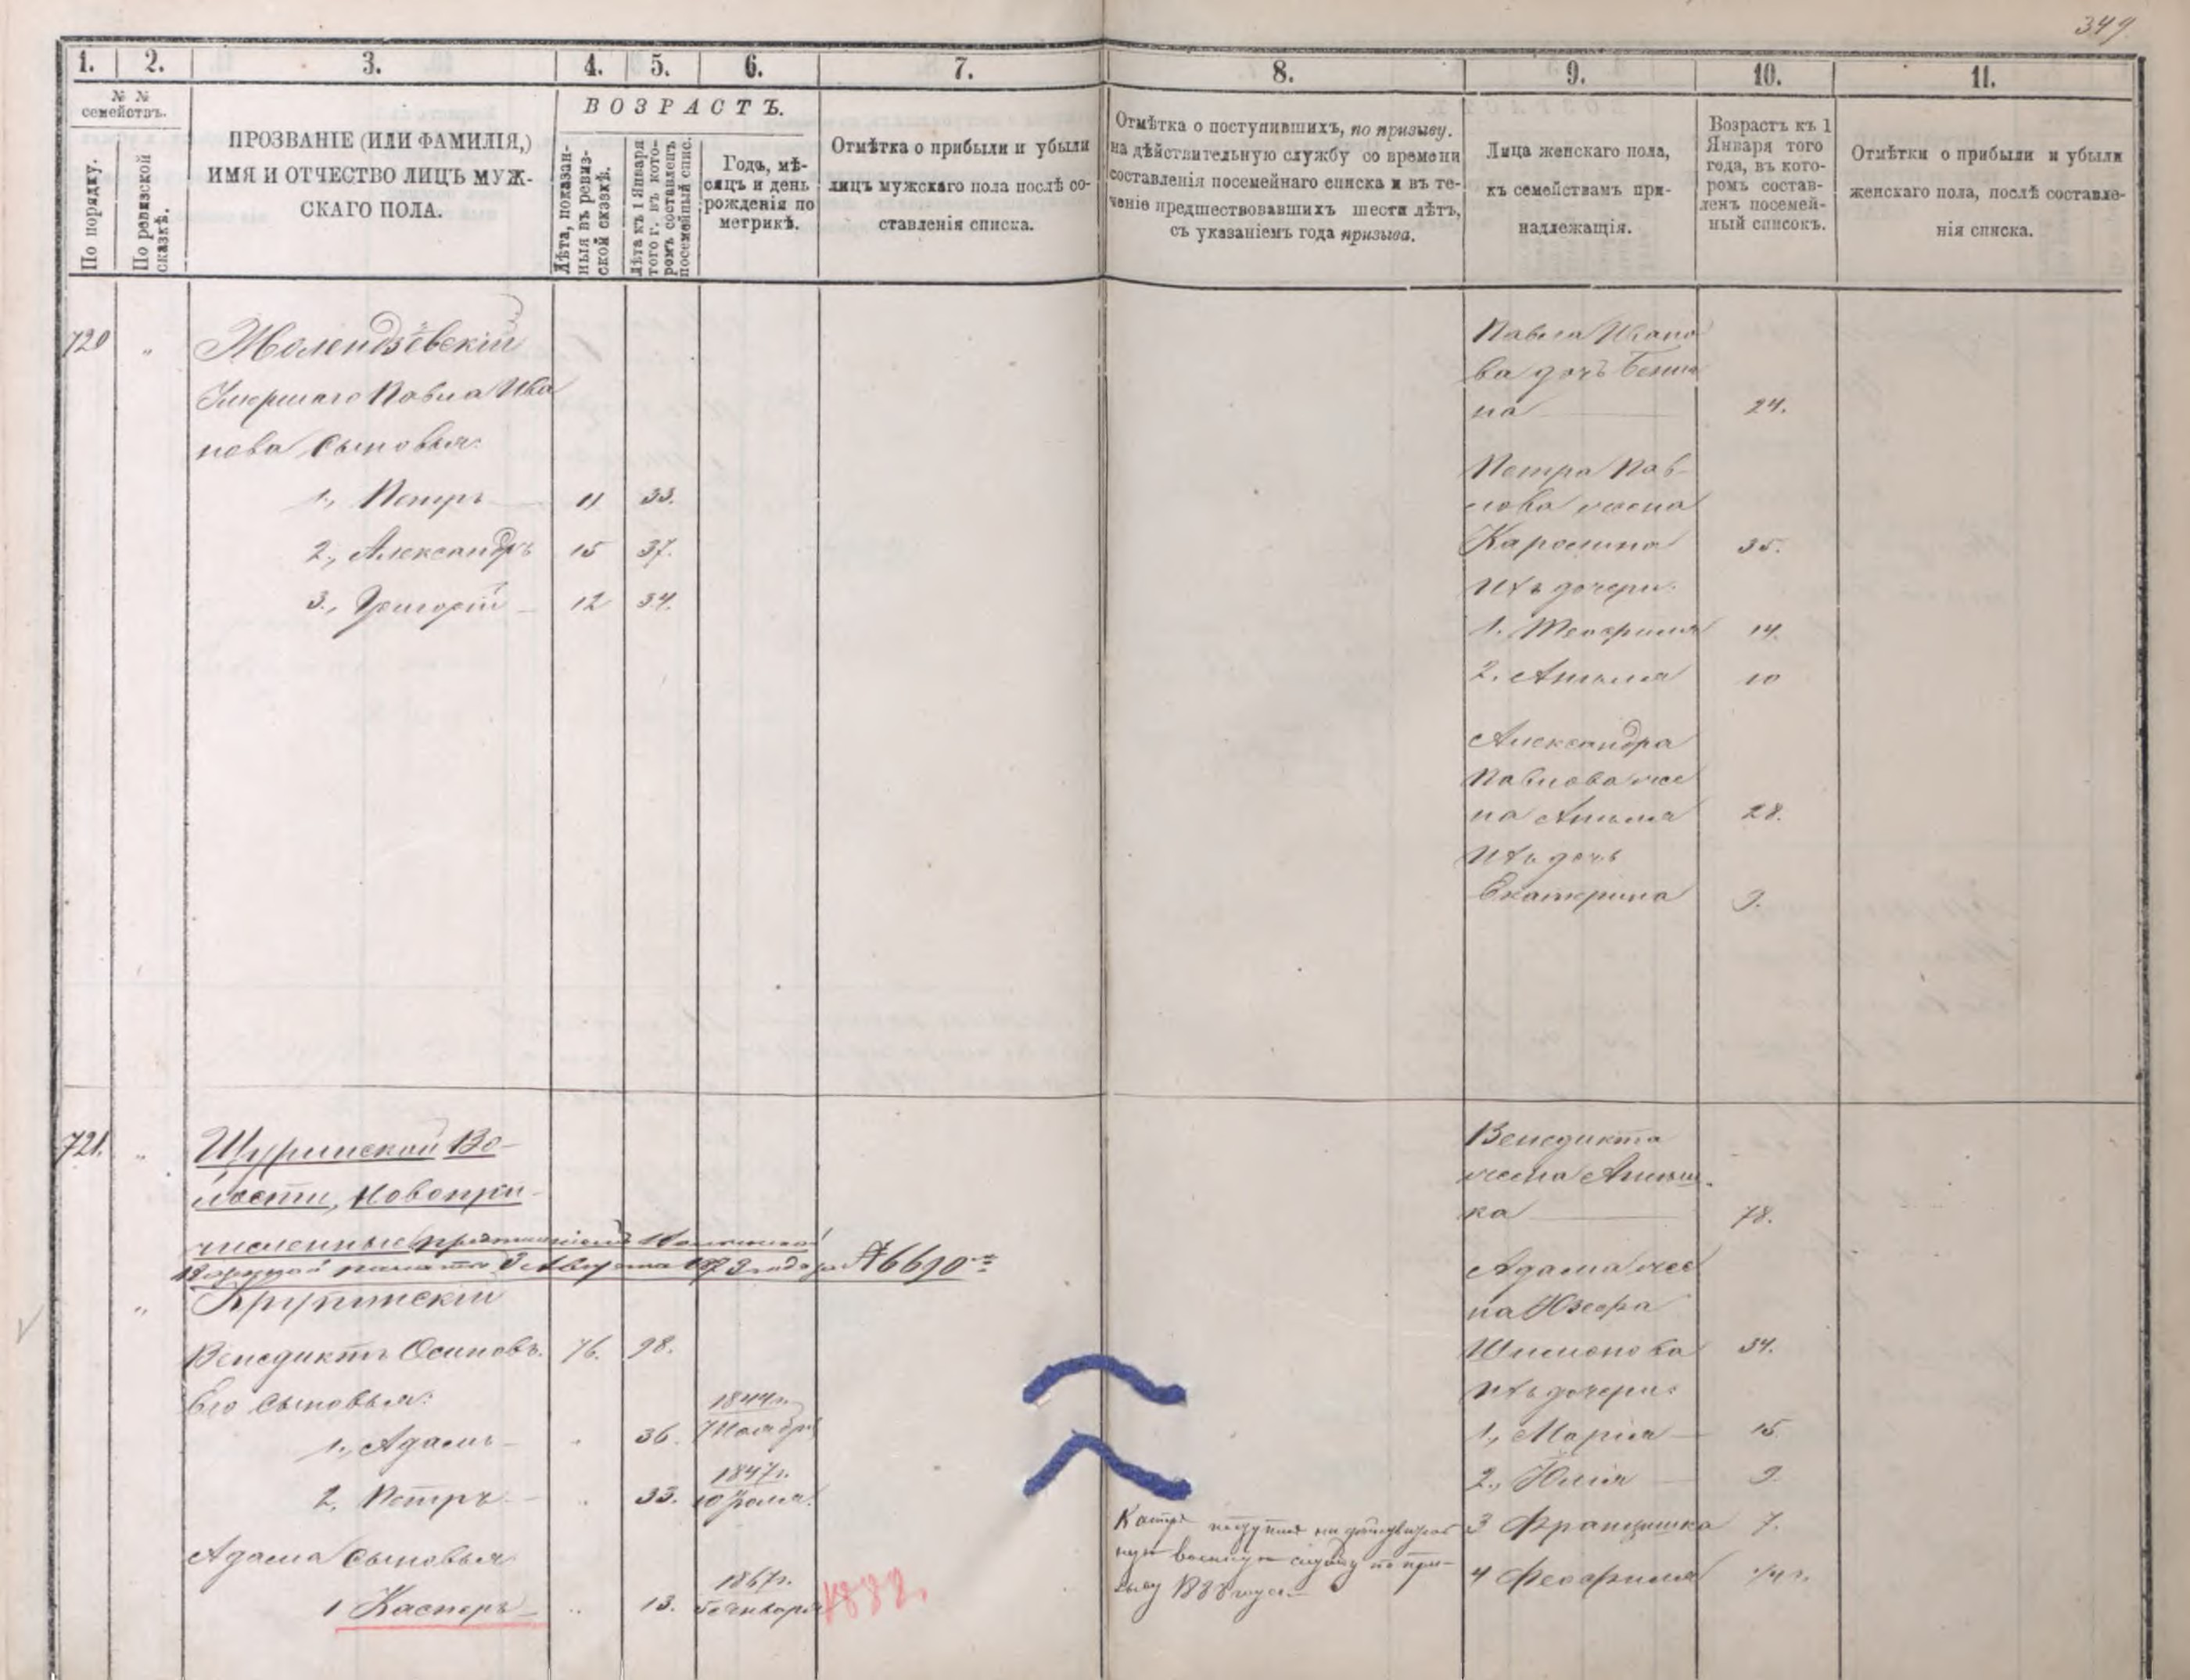 349
1. 2. 3. 4. 5. 6. 7. 8. 9. 10. 11.
№ №
семействъ.
По порядку.
По ревизской
сказкѣ.
ПРОЗВАНІЕ (ИЛИ ФАМИЛІЯ,)
ИМЯ И ОТЧЕСТВО ЛИЦЪ МУЖ-
СКАГО ПОЛА.
ВОЗРАСТЪ.
Лѣта, показан-
ныя въ ревиз-
ской сказкѣ.
Лѣта къ 1 Января
того г. въ кото-
ромъ составленъ
посемейный спис.
Годъ, мѣ-
сяцъ и день
рожденія по
метрикѣ.
Отмѣтка о прибыли и убыли
лицъ мужскаго пола послѣ со-
ставленія списка.
Отмѣтка о поступившихъ, по призыву.
на дѣйствительную службу со времени
составленія посемейнаго списка и въ те-
ченіе предшествовавшихъ шести лѣтъ,
съ указаніемъ года призыва.
Лица женскаго пола,
къ семействамъ при-
надлежащія.
Возрастъ къ 1
Января того
года, въ кото-
ромъ состав-
ленъ посемей-
ный списокъ.
Отмѣтки о прибыли и убыли
женскаго пола, послѣ составле-
нія списка.
720 "
Молендзевскій
Умершаго Павла Ива
нова Сыновья:
1., Петръ 11 33.
2., Александръ 15 37.
3., Григорій 12 34.
Павла Ивано
ва дочь
на 24.
Петра Пав-
лова жена
Каролина 35.
Ихъ дочери:
1. Теофиля 14.
2. Анеля 10
Александра
Павлова же
на Анеля 28.
Ихъ дочь
Екатерина 9.
721. "
Щуринской Во-
лости, Новопри-
численные
3 Августа 1873 года за № 6690
" Крупинскій
Венедиктъ Осиповъ. 76. 98.
Его Сыновья:
1., Адамъ " 36. 1844 г. 7 Ноября
2., Петръ " 33. 1847 г. 10
Адама Сыновья
1 Касперъ " 13. 1867 г. 5 Января 1888.
поступилъ на дѣйствитель
ную военную службу по при-
зыву 1888 года.
Венедикта
жена
ка 78.
Адама же
на Юзефа
Шимонова 34.
Ихъ дочери:
1., Марія 15
2., Юлія 9.
3 Францишка 7.
4 Феофиля 1/4 г.